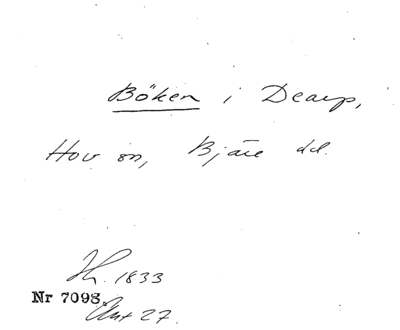 Böken i Dearp,
Hov sn, Bjäre hd.
1833
Nr 7098
27.